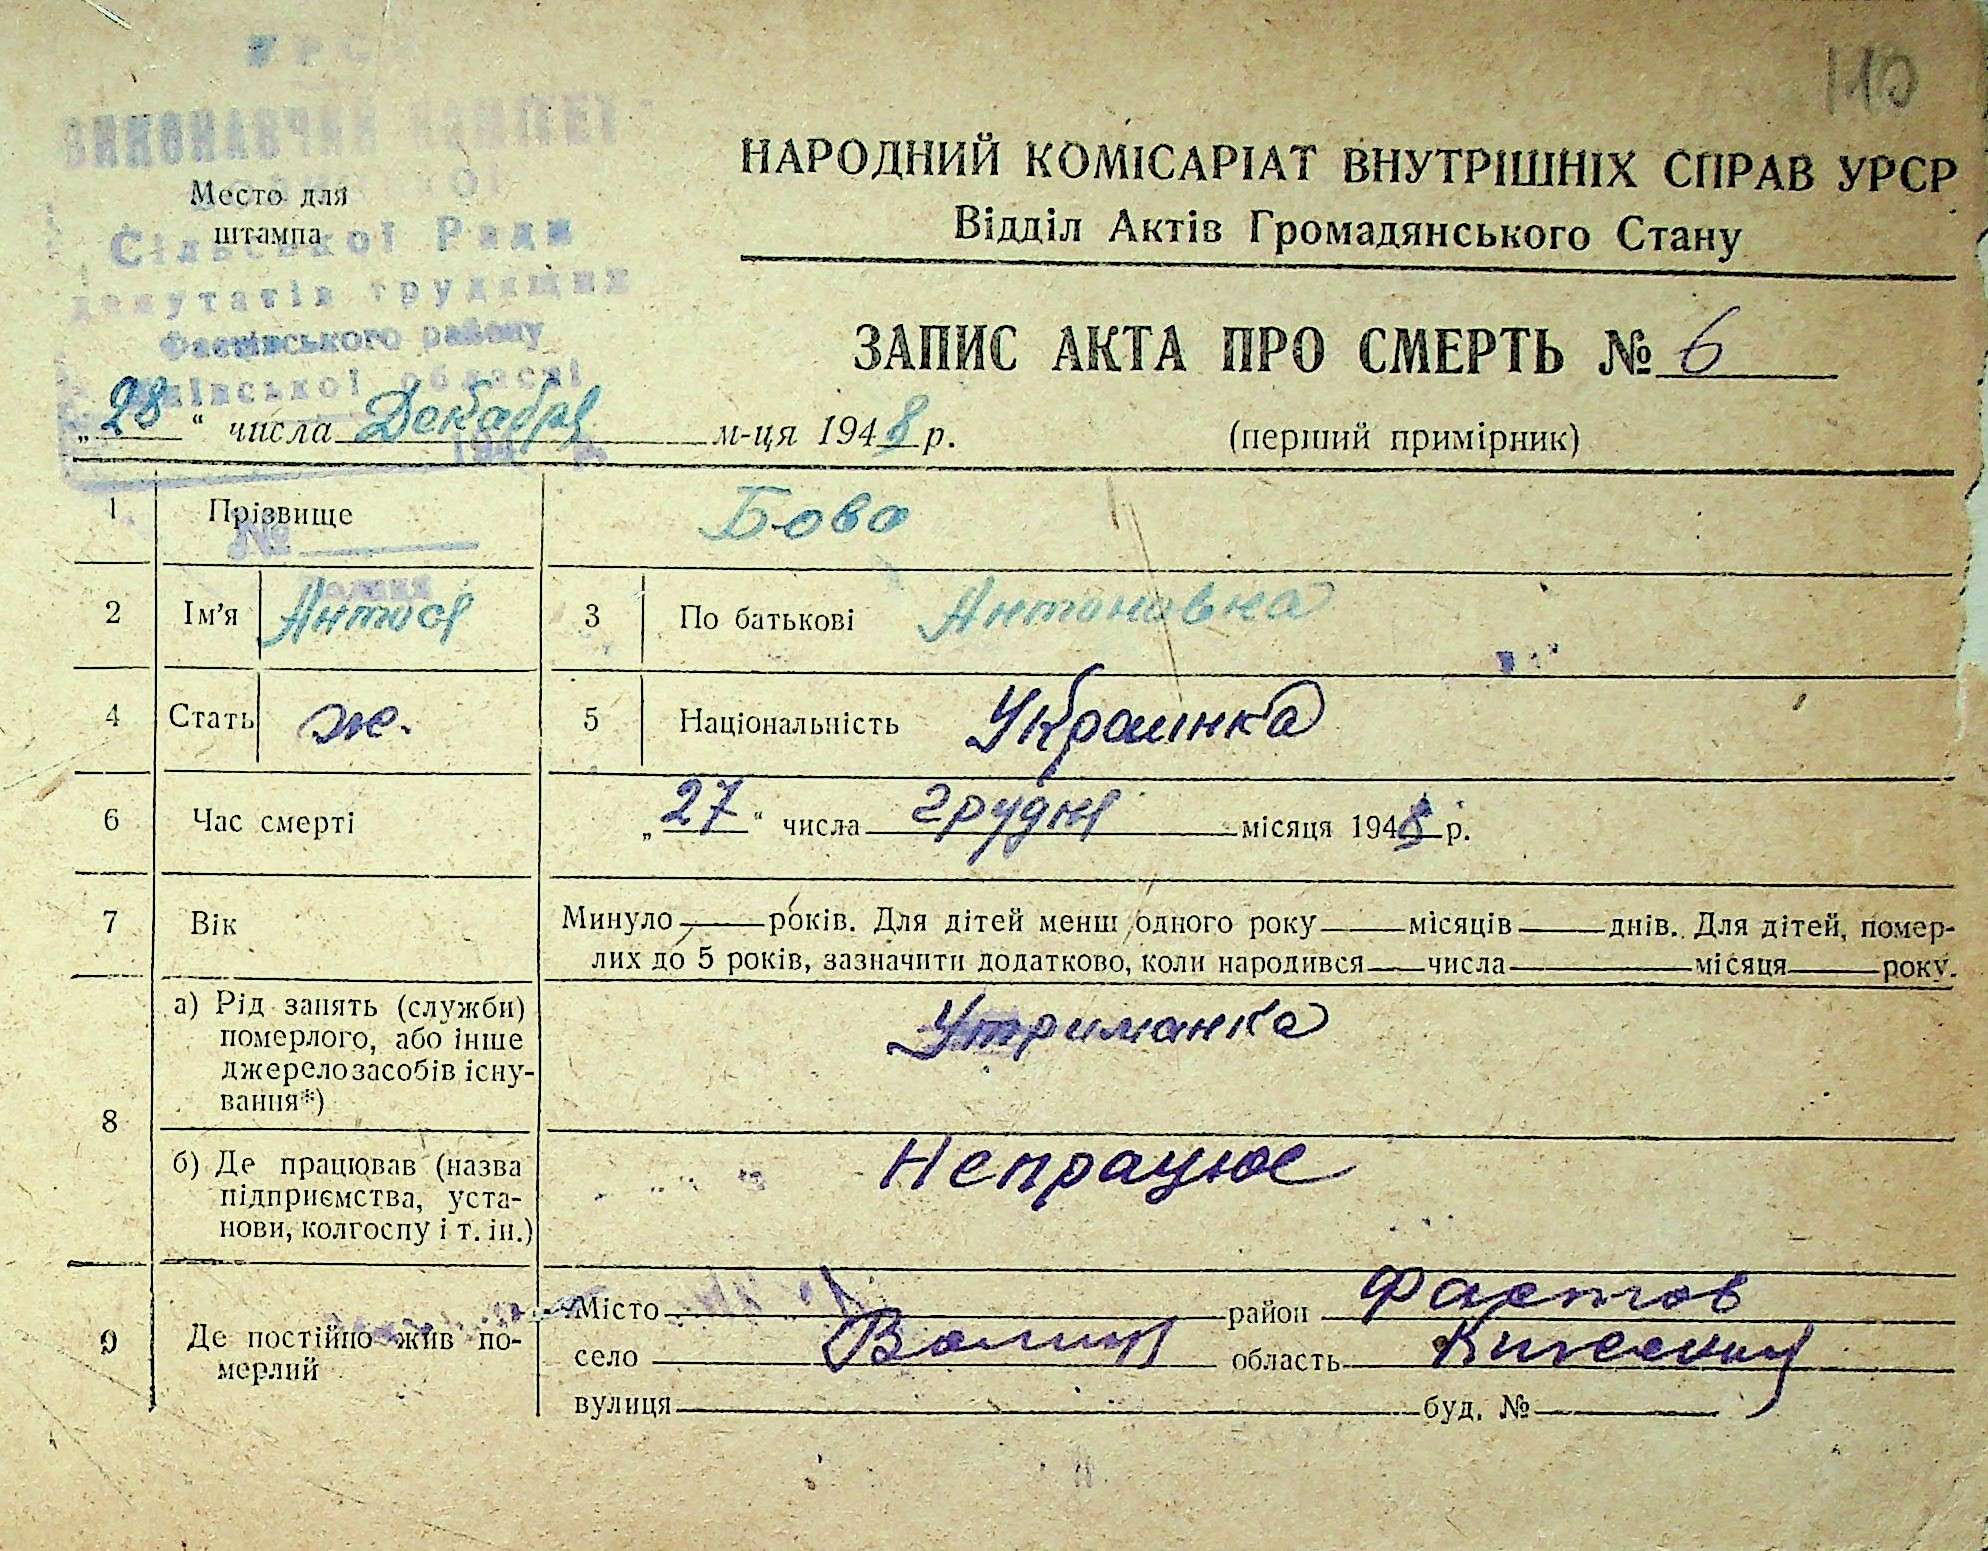 УРСР
ВИКОНАВЧИЙ КОМІТЕТ
Место для
штампа
Сільської Ради
депутатів трудящих
Фастівського району
Київської області
194 р.
№
110
НАРОДНИЙ КОМІСАРІАТ ВНУТРІШНІХ СПРАВ УРСР
Відділ Актів Громадянського Стану
ЗАПИС АКТА ПРО СМЕРТЬ № 6
„28“ числа Декабря м-ця 1948 р.
(перший примірник)
1 Прізвище Бова
2 Ім’я Антося 3 По батькові Антоновна
4 Стать ж. 5 Національність Украинка
6 Час смерті „27“ числа грудня місяця 1948 р.
7 Вік Минуло років. Для дітей менш одного року місяців днів. Для дітей, помер-
лих до 5 років, зазначити додатково, коли народився числа місяця року.
8 а) Рід занять (служби)
померлого, або інше
джерело засобів існу-
вання*)
Утриманка
б) Де працював (назва
підприємства, уста-
нови, колгоспу і т. ін.)
Непрацює
9 Де постійно жив по-
мерлий
Місто район Фастов
село Волиця область Киевский
вулиця буд. №